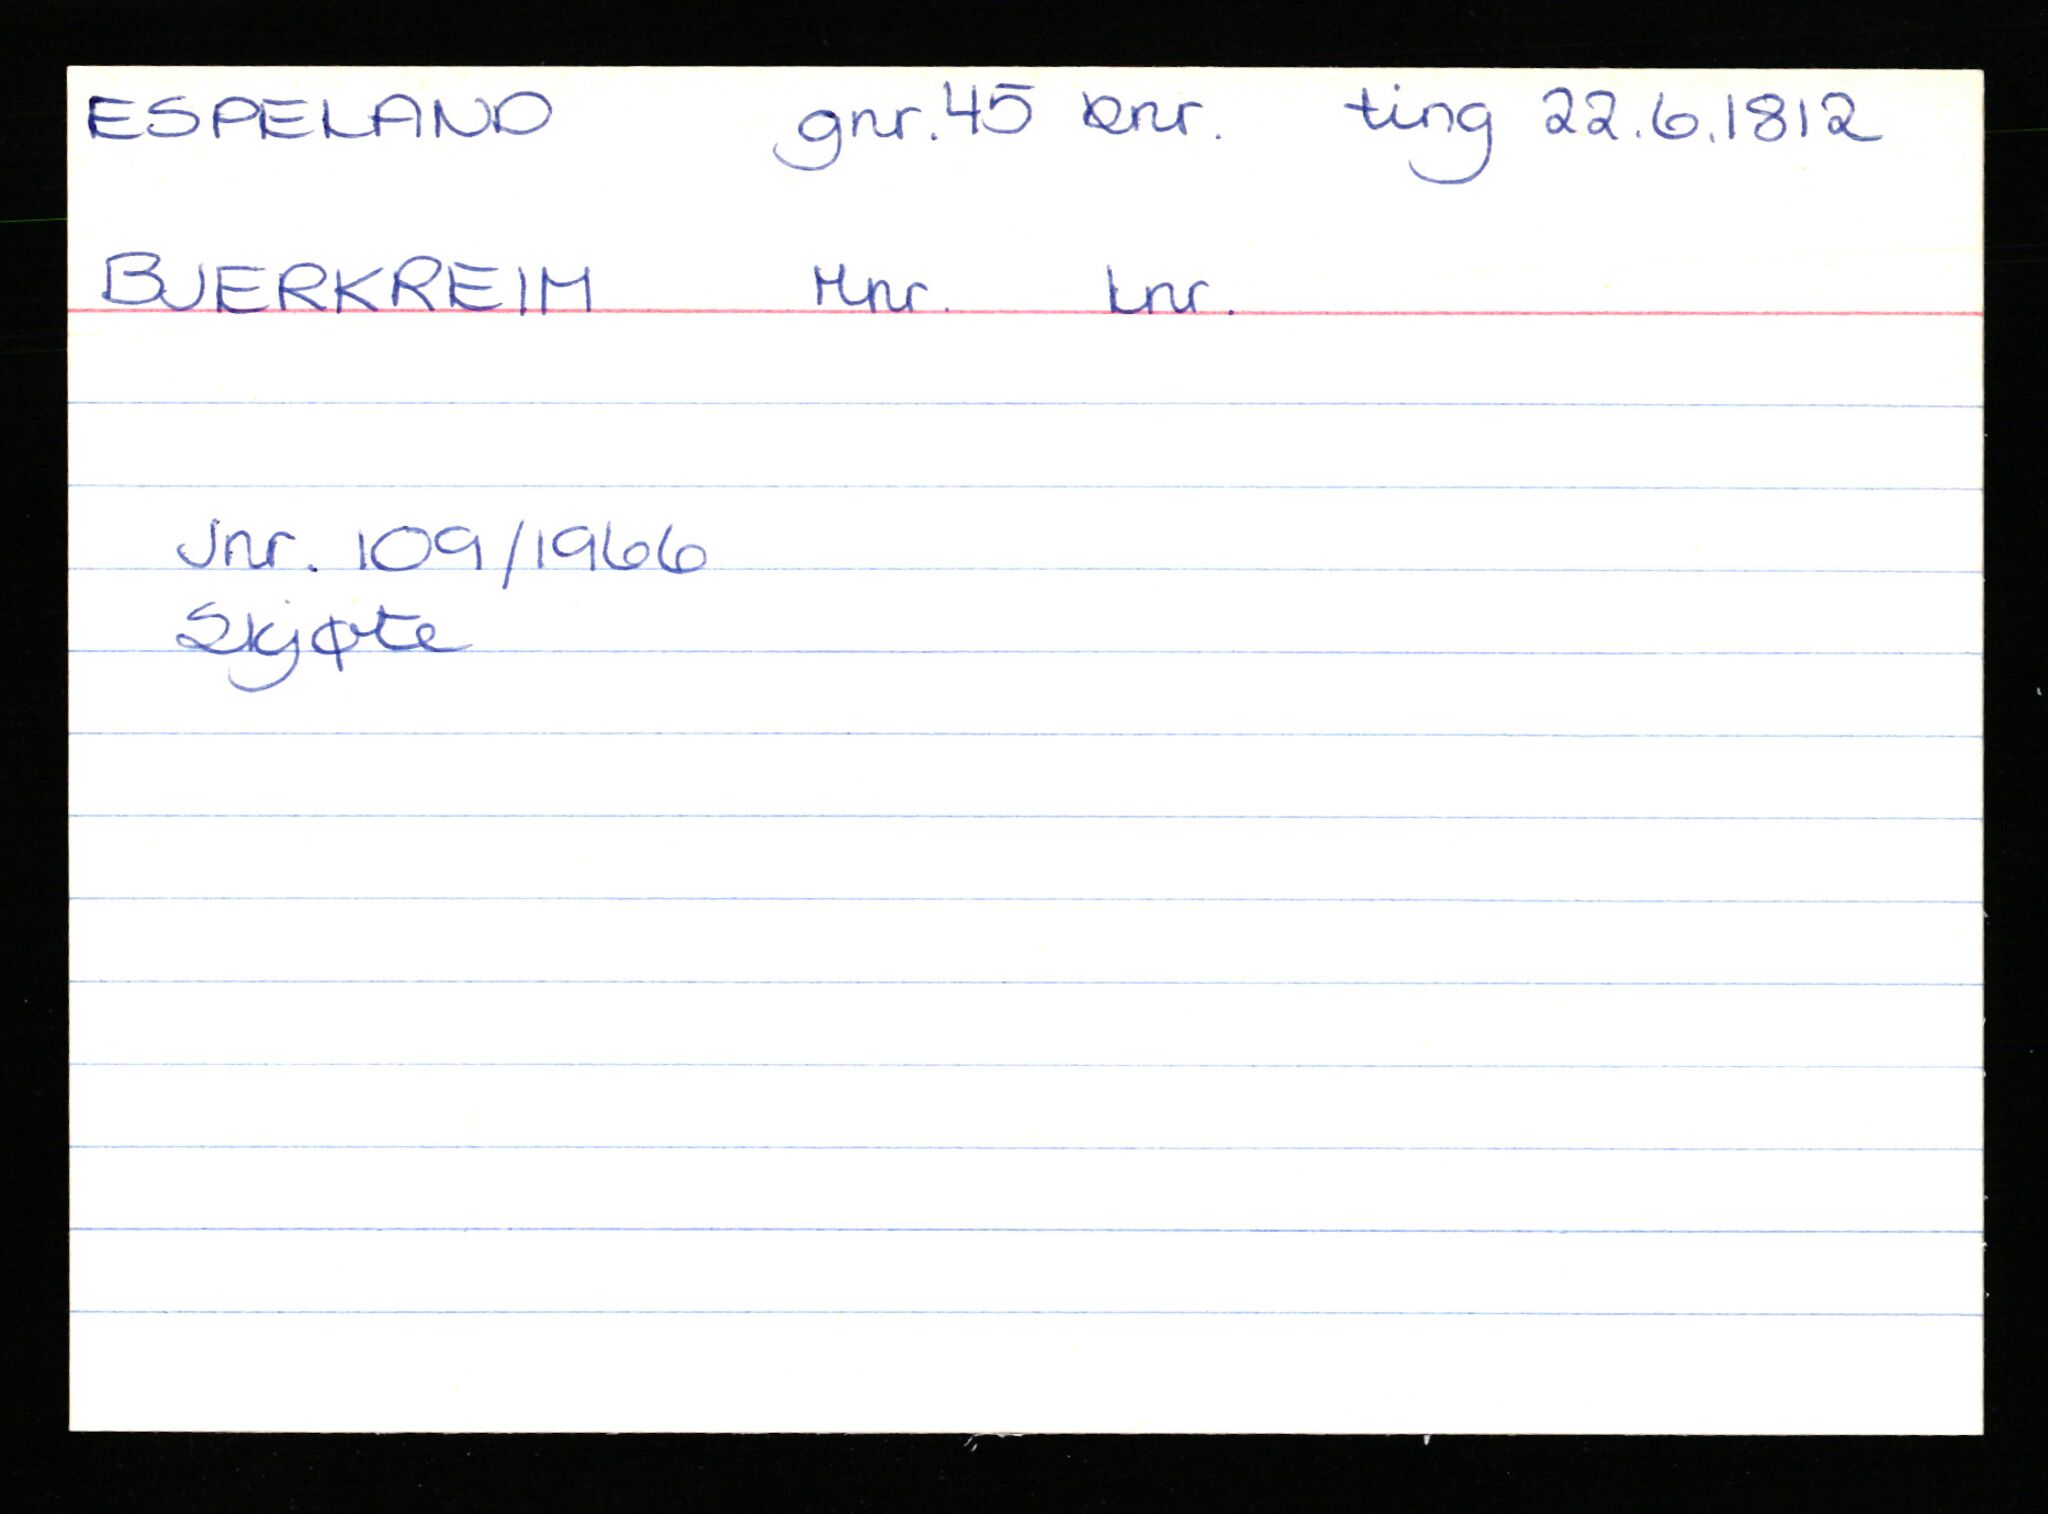 ESPELAND gnr. 45 bnr. ting 22.6.1812
BJERKREIM Mnr. Lnr.
Jnr. 109/1966
Skjøte